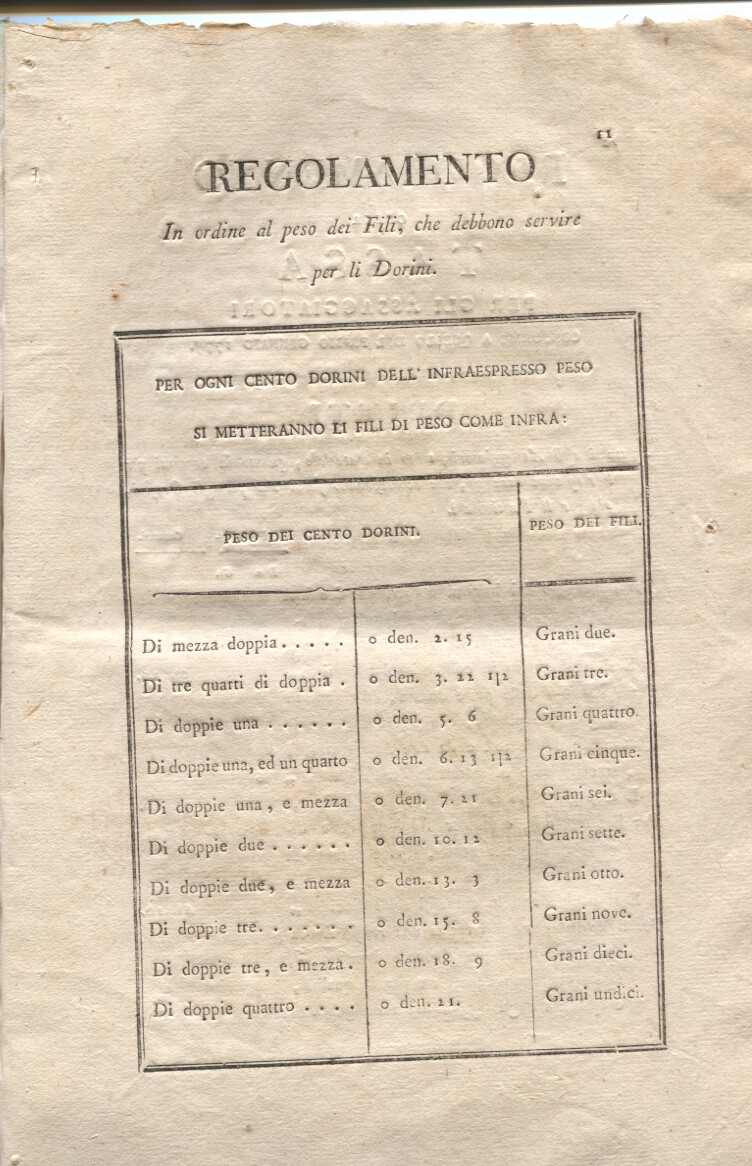 11
REGOLAMENTO
In ordine al peso dei Fili, che debbono servire
per li Dorini.
PER OGNI CENTO DORINI DELL' INFRAESPRESSO PESO
SI METTERANNO LI FILI DI PESO COME INFRA:
PESO DEI CENTO DORINI. PESO DEI FILI.
Di mezza doppia..... o den. 2. 15 Grani due.
Di tre quarti di doppia . o den. 3. 22 1|2 Grani tre.
Di doppie una ...... o den. 5. 6 Grani quattro.
Di doppie una, ed un quarto o den. 6. 13 1|2 Grani cinque.
Di doppie una, e mezza o den. 7. 21 Grani sei.
Di doppie due ...... o den. 10. 12 Grani sette.
Di doppie due, e mezza o den. 13. 3 Grani otto.
Di doppie tre....... o den. 15. 8 Grani nove.
Di doppie tre, e mezza. o den. 18. 9 Grani dieci.
Di doppie quattro .... o den. 21. Grani undici.